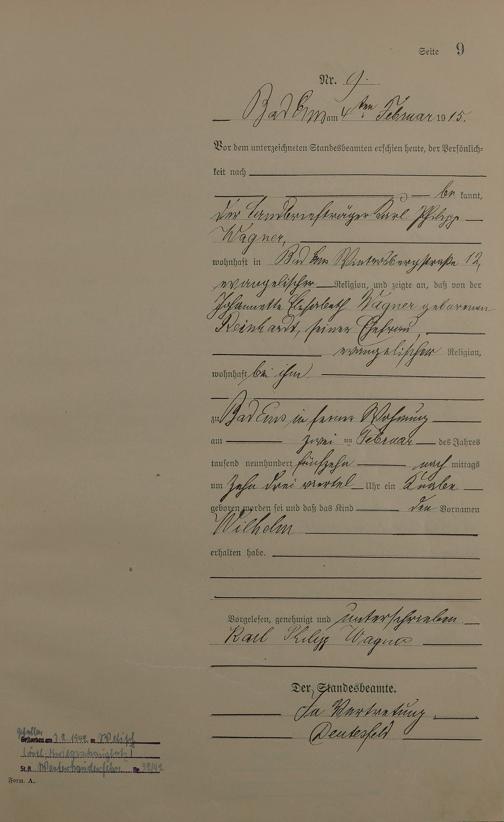 Seite 9
Nr. 9.
Bad Ems am 4ten Februar 1915.
Vor dem unterzeichneten Standesbeamten erschien heute, der Persönlich-
keit nach
be kannt,
der Landbriefträger Karl Philipp
Wagner,
wohnhaft in Bad Ems Wintersbergstraße 12,
evangelischer Religion, und zeigte an, daß von der
Johannette Elisabeth Wagner geborenen
Reinhardt, seiner Ehefrau,
evangelischer Religion,
wohnhaft bei ihm
zu Bad Ems in seiner Wohnung
am zwei ten Februar des Jahres
tausend neunhundert fünfzehn nach mittags
um Zehn drei viertel Uhr ein Knabe
geboren worden sei und daß das Kind den Vornamen
Wilhelm
erhalten habe.
Vorgelesen, genehmigt und unterschrieben
Karl Philipp Wagner
Der Standesbeamte.
In Vertretung
gefallen
Gestorben am 3.2.1942 in
St.A. Nr. 39/42
Form. A.